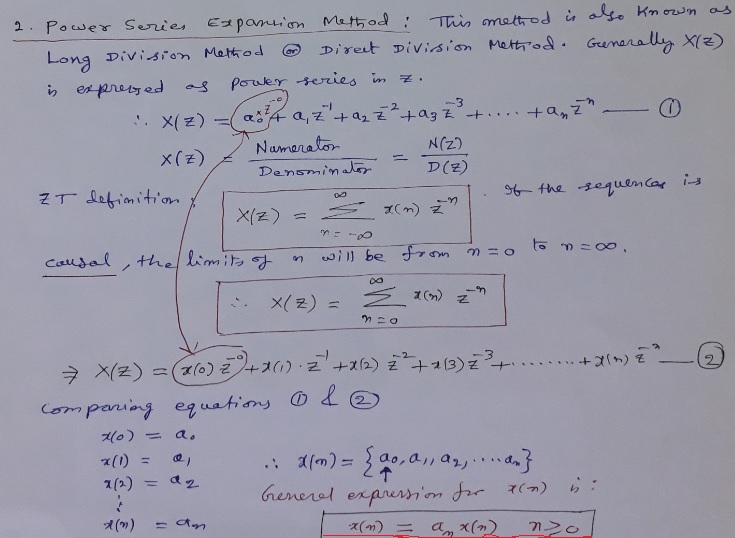 2. Power Series Expansion Method : This method is also known as
Long Division Method (or) Direct Division Method. Generally X(z)
is expressed as power series in z.
∴ X(z) = a₀ × z⁻⁰ + a₁ z⁻¹ + a₂ z⁻² + a₃ z⁻³ + .... + aₙ z⁻ⁿ —— ①
X(z) = Numerator / Denominator = N(z) / D(z)
ZT definition : X(z) = ∑_{n=-∞}^{∞} x(n) z⁻ⁿ . If the sequences is
causal, the limits of n will be from n=0 to n=∞.
∴ X(z) = ∑_{n=0}^{∞} x(n) z⁻ⁿ
⇒ X(z) = x(0) z⁻⁰ + x(1) · z⁻¹ + x(2) z⁻² + x(3) z⁻³ + ........ + x(n) z⁻ⁿ — ②
Comparing equations ① & ②
x(0) = a₀
x(1) = a₁
x(2) = a₂
⋮
x(n) = aₙ
∴ x(n) = { a₀, a₁, a₂, .... aₙ }
↑
General expression for x(n) is :
x(n) = aₙ x(n) n ≥ 0